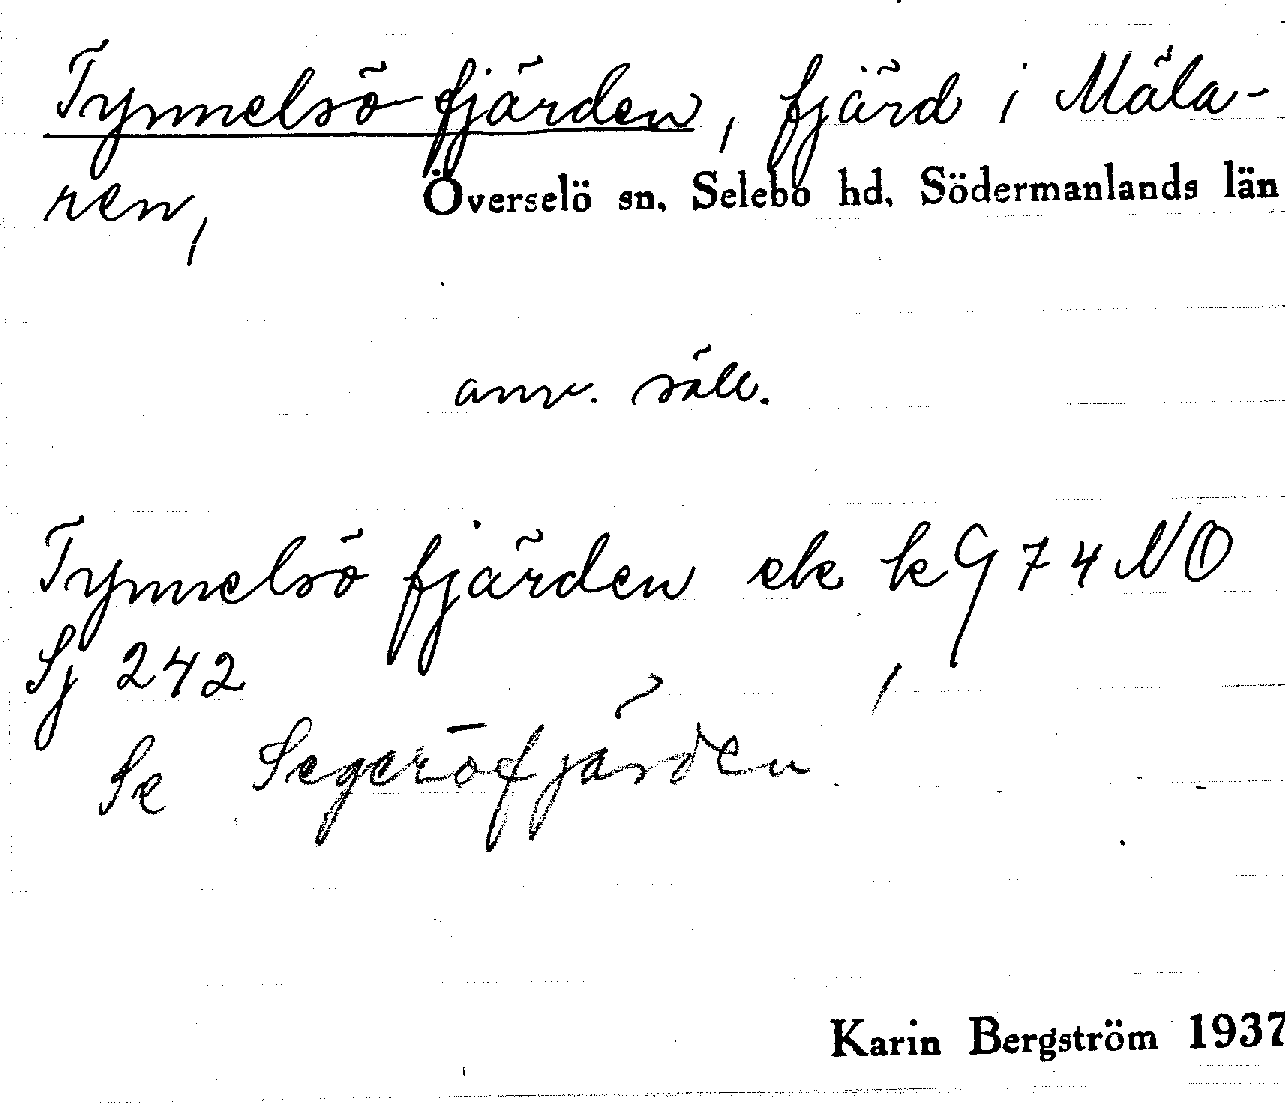 Tynnelsö fjärden, fjärd i Mäla-
ren,
Överselö sn. Selebo hd. Södermanlands län
anv. säll.
Tynnelsö fjärden ek k G 74 NO,
Sj 242
Se Segeröfjärden
Karin Bergström 1937